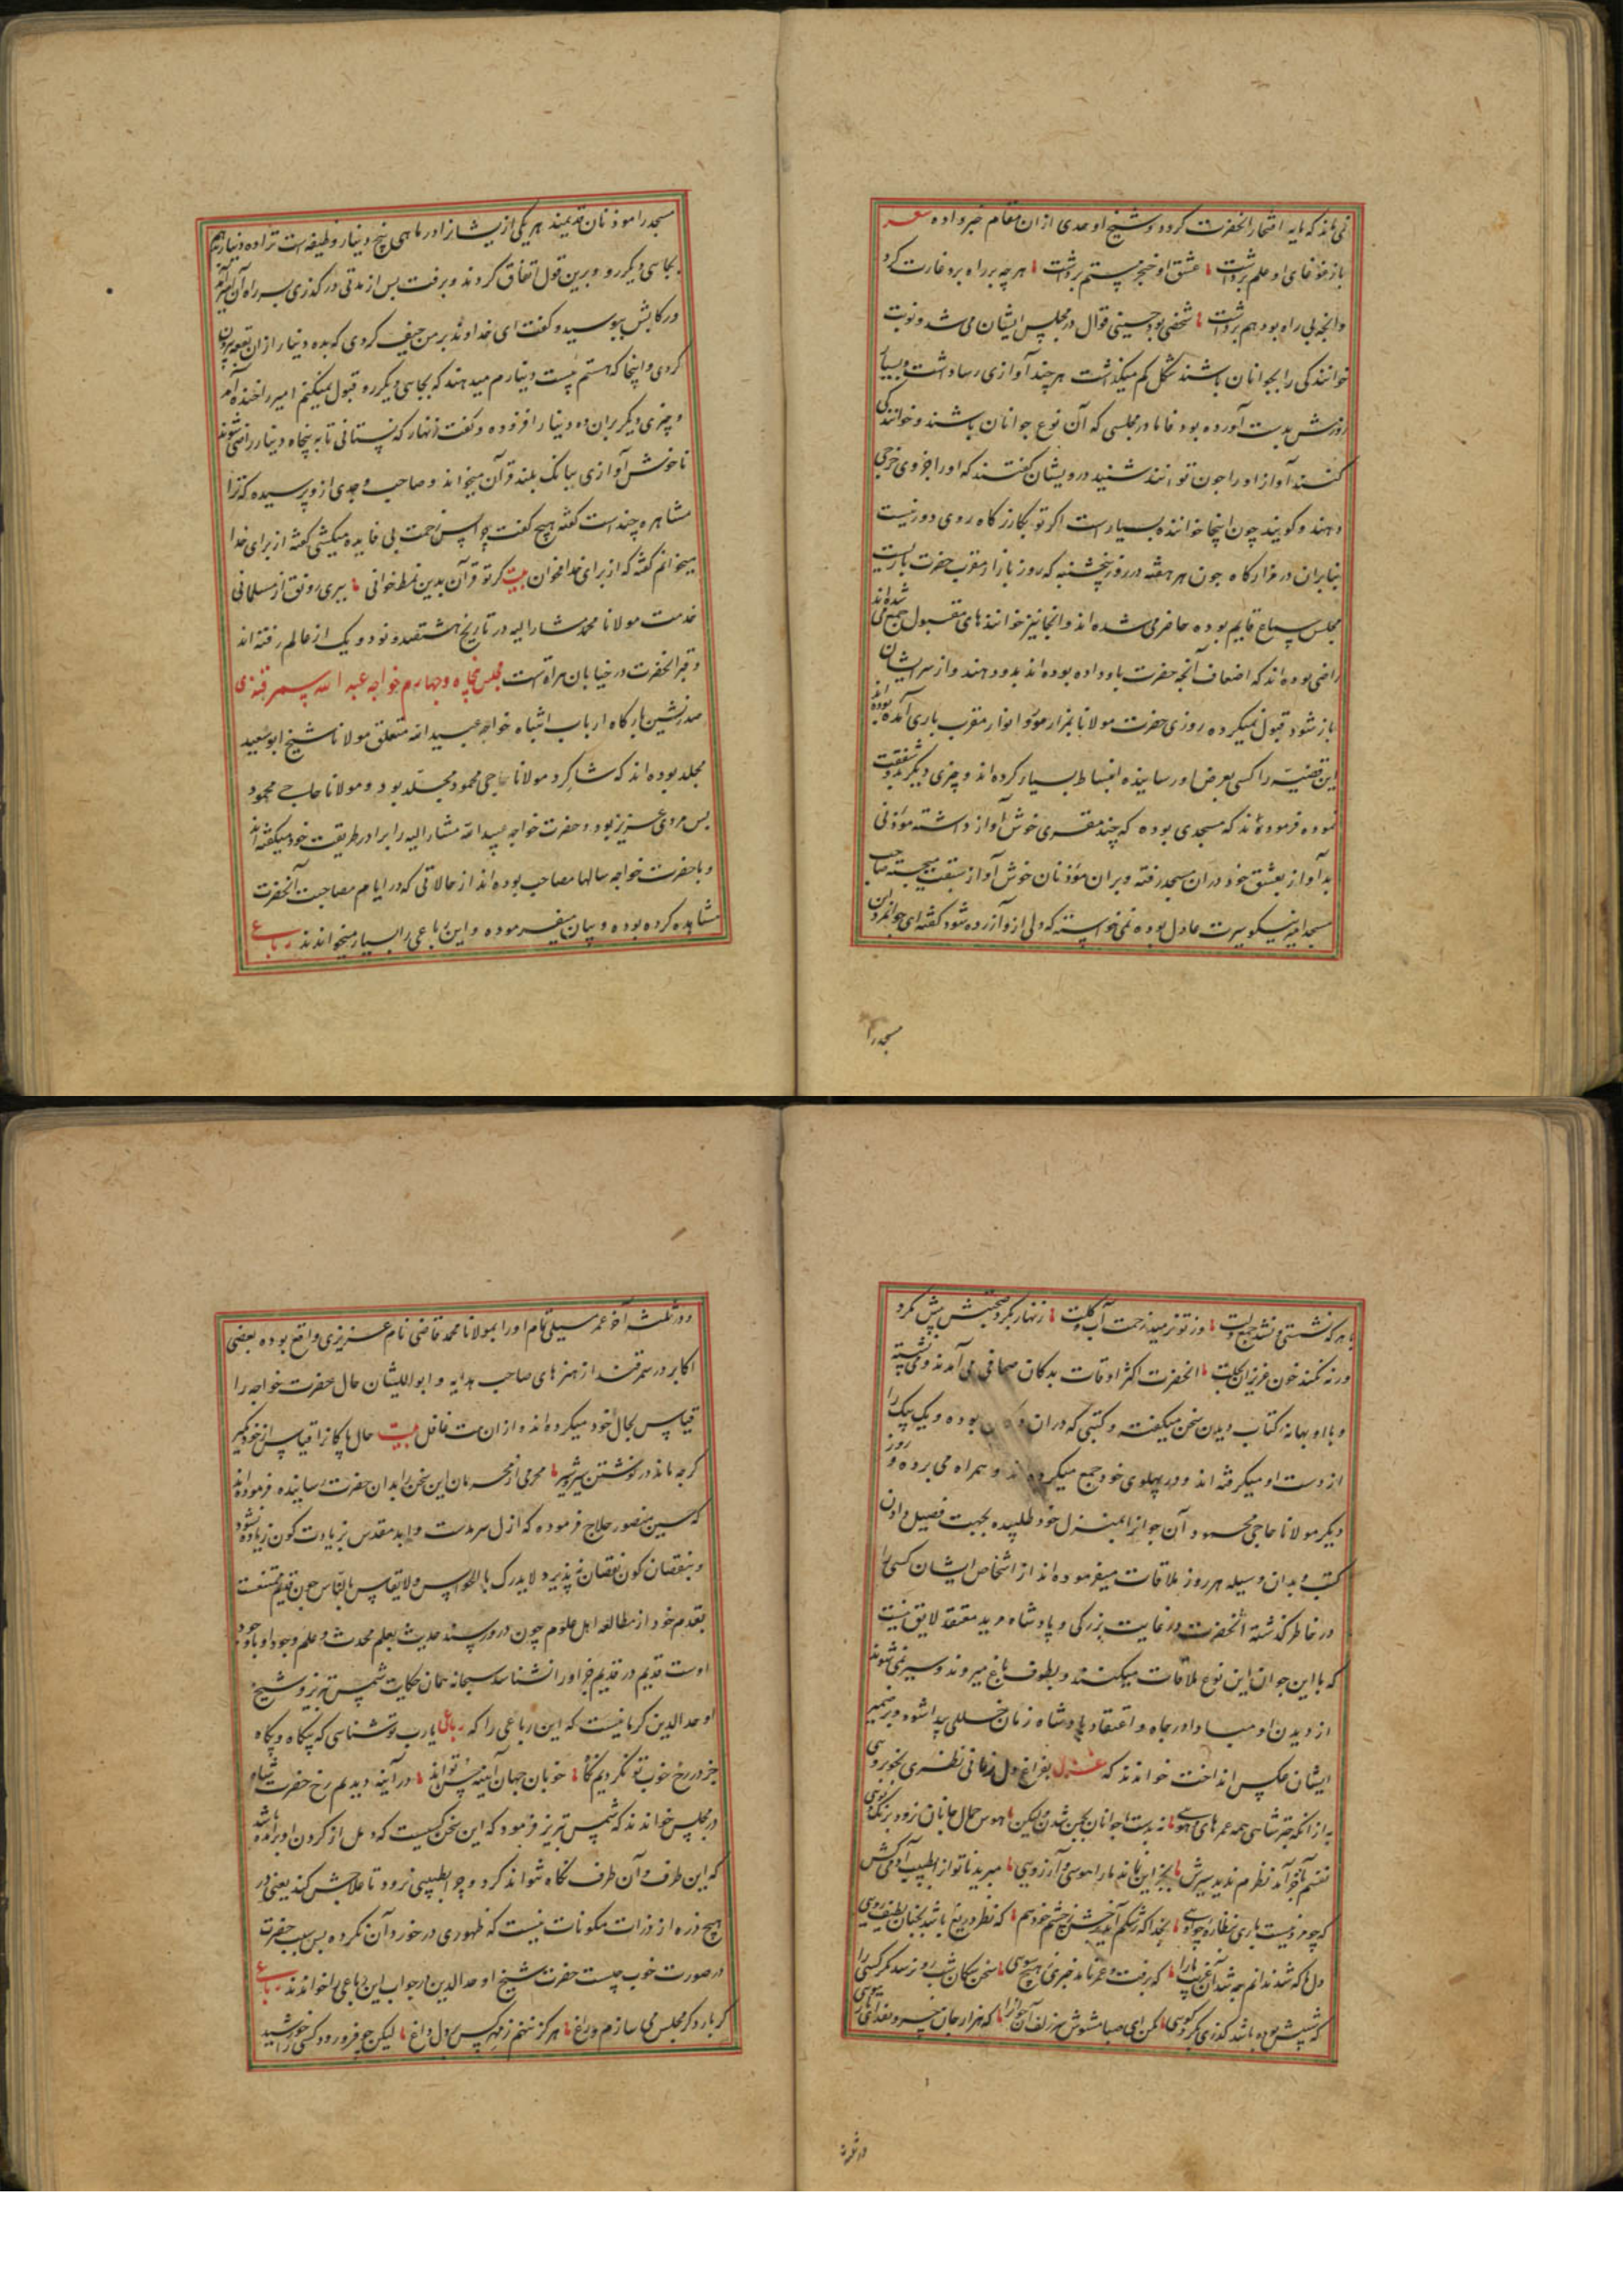 نی ماند که مایه افتخار انحضرت کردد و شیخ اوحدی ازان مقام خبر داده شعر
باز غوغای او علم برداشت عشق او خنجر ستم برداشت هرچه بر راه بود غارت کرد
وانچه بی راه بود هم برداشت شخصی بود حسینی قوال در مجلس ایشان می شد و نوبت
خوانندکی را بجوانان باشند مشکل کم میکذاشت هرچند آوازی رسا داشت و بسیار
ورزش بدست آورده بود غانا در مجلسی که آن نوع جوانان باشند و خوانندکی
کنند آواز او را چون توانند شنید درویشان کفتند که او را جزوی خرجی
دهند و کویند چون اینجا خواننده بسیارست اکر تو بکازرکاه روی دور نیست
بنابران در مزارکاه چون هر هفته در روز پنجشنبه که روز بازار مقرب حضرت باریست
مجلس سماع قایم بوده حاضر می شده اند وانجا نیز خواننده های مقبول جمع می شده اند
راضی بوده اند که اضعاف آنچه حضرت باو داده بوده اند بدو دهند و از سر ایشان
باز شود قبول نمیکرده روزی حضرت مولانا بمزار مورد انوار مقرب باری آمده بوده اند
این قضیه را کسی بعرض اور سانیده انبساط بسیار کرده اند و چیزی دیکر بدو شفقت
نموده فرموده اند که مسجدی بوده که چند مقری خوش آواز داشته موذنی
بد آواز بعشق خود دران مسجد رفته و بران موذنان خوش آواز سبقت میجسته صاحب
مسجد امیر نیکو سیرت عادل بوده نمی خواسته که دلی ازو آزرده شود کفته ای جوانمرد این
مسجد را
مسجد را موذنان قدیمند هر یکی از یشانرا در ماهی پنج دینار وظیفه است ترا ده دینار دهم
بجاسی دیکر رو و برین قول اتفاق کردند و برفت پس از مدتی در کذری بسر راه آن امیر آمد
و رکابش ببوسید و کفت ای خداوند بر من حیف کردی که بده دینار از ان بقعه بیرون
کردی و اینجا که هستم بیست دینارم میدهند که بجاسی دیکر رو قبول نمیکنم امیر را خنده آمد
و چیزی دیکر بران ده دینار افزوده و کفت زنهار که نستانی تا به پنجاه دینار راضی شوند
ناخوش آوازی ببانک بلند قرآن میخواند و صاحب وجدی ازو پرسیده که ترا
مشاهره چندست کفته هیچ کفت چرا پس زحمت بی فایده میکشی کفته از برای خدا
میخوانم کفته که از برای خدا مخوان بیت کر تو قرآن بدین نمط خوانی ببری رونق از مسلمانی
خدمت مولانا محمد مشارالیه در تاریخ هشتصد و نود و یک از عالم رفته اند
و قبر انحضرت در خیابان هراتست مجلس پنجاه و چهارم خواجه عبد الله سمرقندی
صدر نشین بارکاه ارباب اشباه خواجه عبیدالله متعلق مولانا شیخ ابو سعید
مجلد بوده اند که شاکرد مولانا حاجی محمود مجلد بود و مولانا حاجی محمود
بس مردی عزیز بود و حضرت خواجه عبیدالله مشارالیه را برادر طریقت خود میکفته اند
و با حضرت خواجه سالها مصاحب بوده اند از حالاتی که در ایام مصاحبت آنحضرت
مشاهده کرده بوده و بیان میفرموده و این رباعی را بسیار میخواندند رباعی
با هر که نشستی و نشد جمع دلت وز تو نرمید زحمت آب و کلت زنهار بکرد صحبتش پیش مکرد
ورنه نکند خون عزیزان بحلت انحضرت اکثر اوقات بدکان صحافی می آمدند و می نشسته
و با او بهانه کتاب دیدن سخن میکفته و کتبی که دران دکان بوده و یک یک را
از دست او میکرفته اند و در پهلوی خود جمع میکرده اند و همراه می برده و روز
دیکر مولانا حاجی محمود آن جوانرا بمنزل خود طلبیده بجهت فیصل دادن
کتب و بدان وسیله هر روز ملاقات میفرموده اند از اشخاص ایشان کسی را
در خاطر کذشته انحضرت در غایت بزرکی و پادشاه مرید معتقد لایق نیست
که با این جوان این نوع ملاقات میکنند و بطوف باغ میروند و سیر نمی شوند
از دیدن او مبادا در جاه و اعتقاد پادشاه زمان خللی پیدا شود و بر ضمیر
ایشان عکس انداخت خواندند که غزل بفراغ دل زمانی نظری بخوبرویی
به از انکه چتر شاهی همه عمر های و هویی نه بدست جوانان بکین شدن لیکن هوس جمال جانان نرود برنک و بویی
نفسم بآخر آمد نظرم ندید سیرش بجز این نماند ما را هوسی و آرزویی مبرید ناتوانرا بطبیب آدمی کش
که چو مرد نیست باری بنظاره چو اویی بخدا که رشکم آید ز دو چشم روشن خود هم که نظر دریغ باشد بچنان لطیف رویی
دل ما که شد ندانم چه شد آن غریب ما را که برفت و عمر نامد خبری ز هیچ سویی سخن سکان شب رو نرسد مکر کسی را
که شبیش بوده باشد کذری بکرد کویی مکن ای صبا مشوش سر زلف آن جوانرا که هزار جان خسرو بفدای تار مویی
در ثلث
و در ثلث آخر عمر سیلی تمام او را بمولانا محمد قاضی نام عزیزی واقع بوده بعضی
اکابر در سمرقند از هنر های صاحب هدایه و ابواللیثان حال حضرت خواجه را
قیاس بحال خود میکرده اند و از ان ست غافل بیت حال پاکانرا قیاس از خود مکیر
کرچه ماند در نوشتن شیر و شیر محرمی از محرمان این سخن را بدان حضرت رسانیده فرموده اند
که حسین منصور حلاج فرموده که ازل سرمدست و ابد مقدس بزیادت کون زیاده نشود
و بنقصان کون نقصان نه پذیرد لا یدرک بالحواس و لا یقاس بالناس چون قدیم ممتنعست
بقدم خود از مطالعه اهل علوم چون درو رسند حدیث بعلم محدث و علم وجود او با وجود
اوست قدیم در قدیم جز او را نشناسد سبحانه همان حکایت شمس تبریز و شیخ
اوحدالدین کرمانیست که این رباعی را که رباعی یارب تو شناسی که بیکاه و بکاه
جز در رخ خوب تو نکردیم نکاه خوبان جهان آینه حسن تواند در آینه دیدیم رخ حضرت شاه
در مجلس خواندند که شمس تبریز فرمود که این سخن کسیست که دمل از کردن او برآمده باشد
که این طرف و آن طرف نکاه نتواند کرد و چرا بطبیبی نرود تا علاجش کند یعنی در
هیچ ذره از ذرات مکونات نیست که ظهوری در خورد آن نکرده پس سبب حضرت
در صورت خوب چیست حضرت شیخ اوحدالدین در جواب این رباعی را خواندند رباعی
کر بار دکر مجلس می سازم و راغ هرکز ننهم ز مهر کس بر دل داغ لیکن چو فرو رود کسی را خورشید